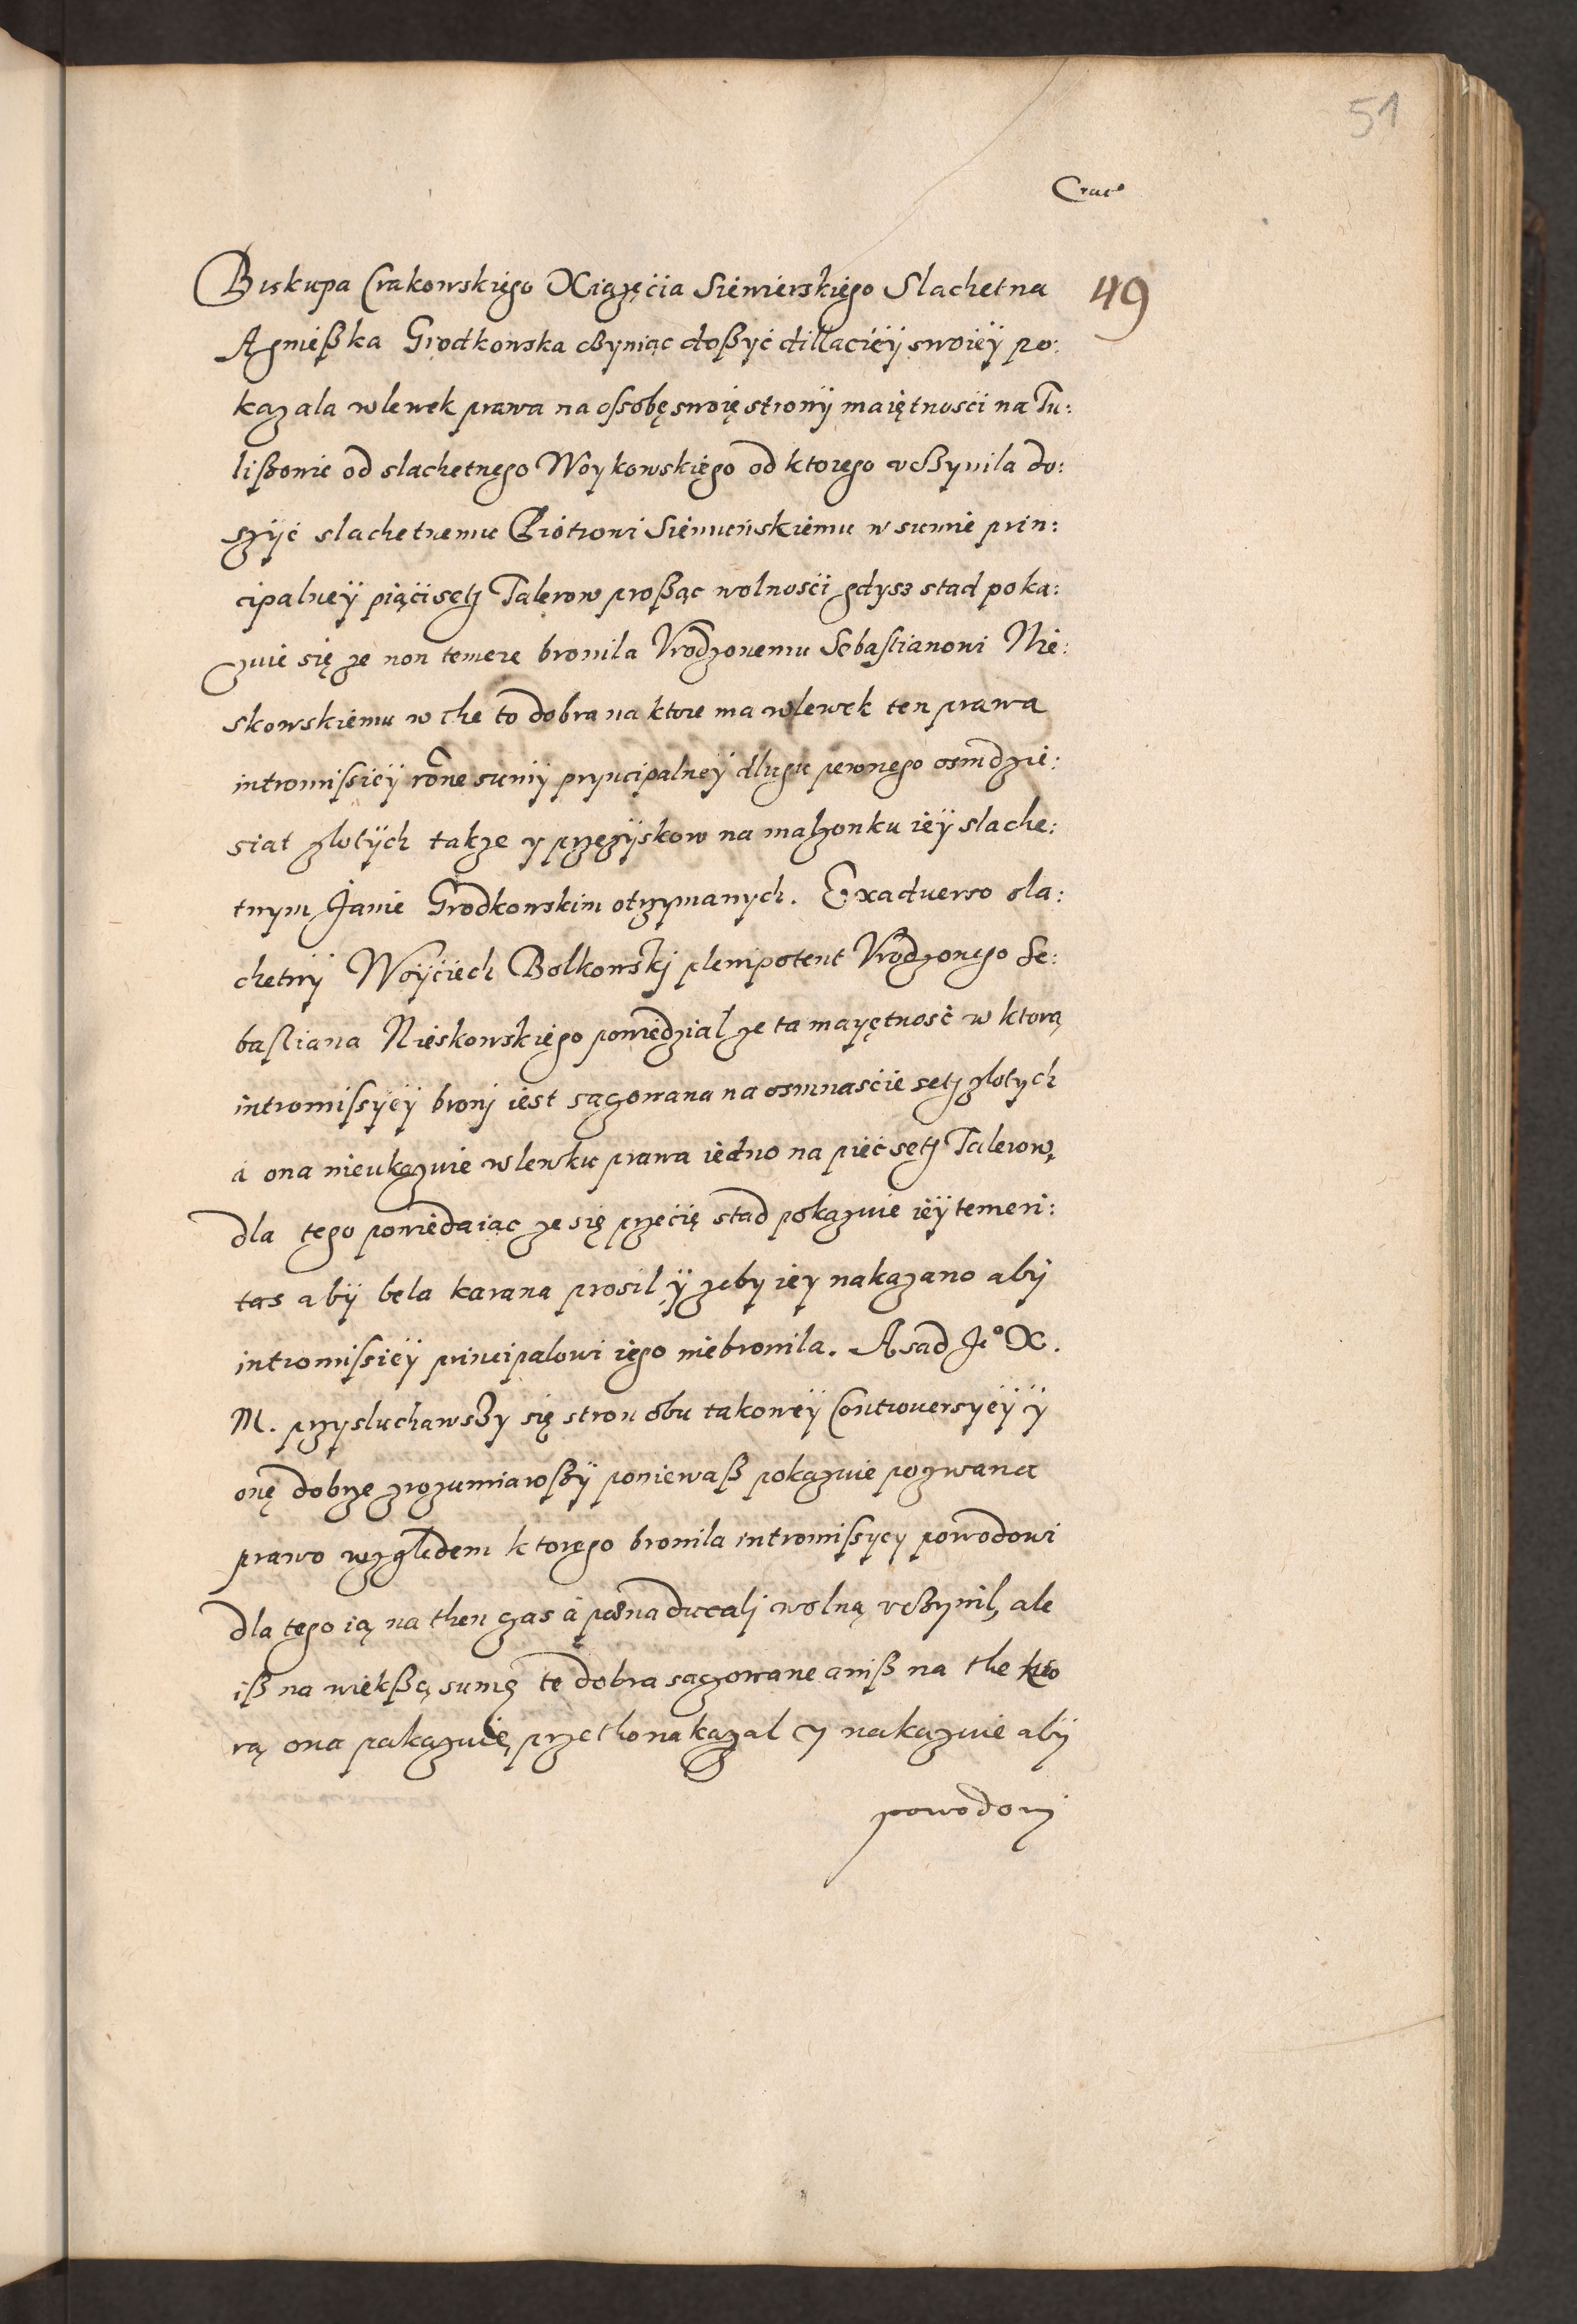 51
Crac
49
Biskupa Crakowskiego Xiążęcia Siewierskiego Slachetna
Agnießka Grodkowska cßyniąc doßyć dillacieÿ swoieÿ po:
kazala wlewek prawa na ossobę swoię stronÿ maiętnosci na Tu:
lißowie od slachetnego Woykowskiego od ktorego vcßynila do:
szÿć slachetnemu Piotrowi Siemuńskiemu w sumie prin:
cipalneÿ piąćisetj Talerow proßąc wolnosći gdysz stad poka:
zuie się ze non temere bronila Vrodzonemu Sebastianowi Nie:
skowskiemu w the to dobra na ktore ma wlewek ten prawa
intromissieÿ rone sumÿ pryncipalneÿ dlugu pewnego osmdzie:
siat zlotÿch takze y przezÿskow na malzonku ieÿ slache:
tnym Janie Grodkowskim otrzymanych. Exaduerso sla:
chetnÿ Woyćiech Bolkowskj plenipotent Vrodzonego Se:
bastiana Nieskowskiego powiedzial ze ta mayętność w ktorą
intromissyeÿ bronj iest sązowana na osmnaśćie setj zlotych
á ona nieukazuie wlewku prawa iedno na pieć setj Talerow,
dla tego powiedaiąc ze się przećię stad pokazuie ieÿ temeri:
tas abÿ bela karana prosil ÿ zeby iey nakazano abÿ
intromissieÿ principalowi iego niebronila. A sad Je° X.
M. przysluchawszy się stron obu takoweÿ Controuersyeÿ ÿ
onę dobrze zrozumiawßÿ poniewaß pokazuie pozwana
prawo względem ktorego bronila intromissyey powodowi
dla tego ią na then czas á pœna ducalj wolną vcßynil, ale
iß na wiekßą sumę te dobra sązowane aniß na the kto
rą ona pakazuie, przetho nakazal y nakazuie abÿ
powodowj